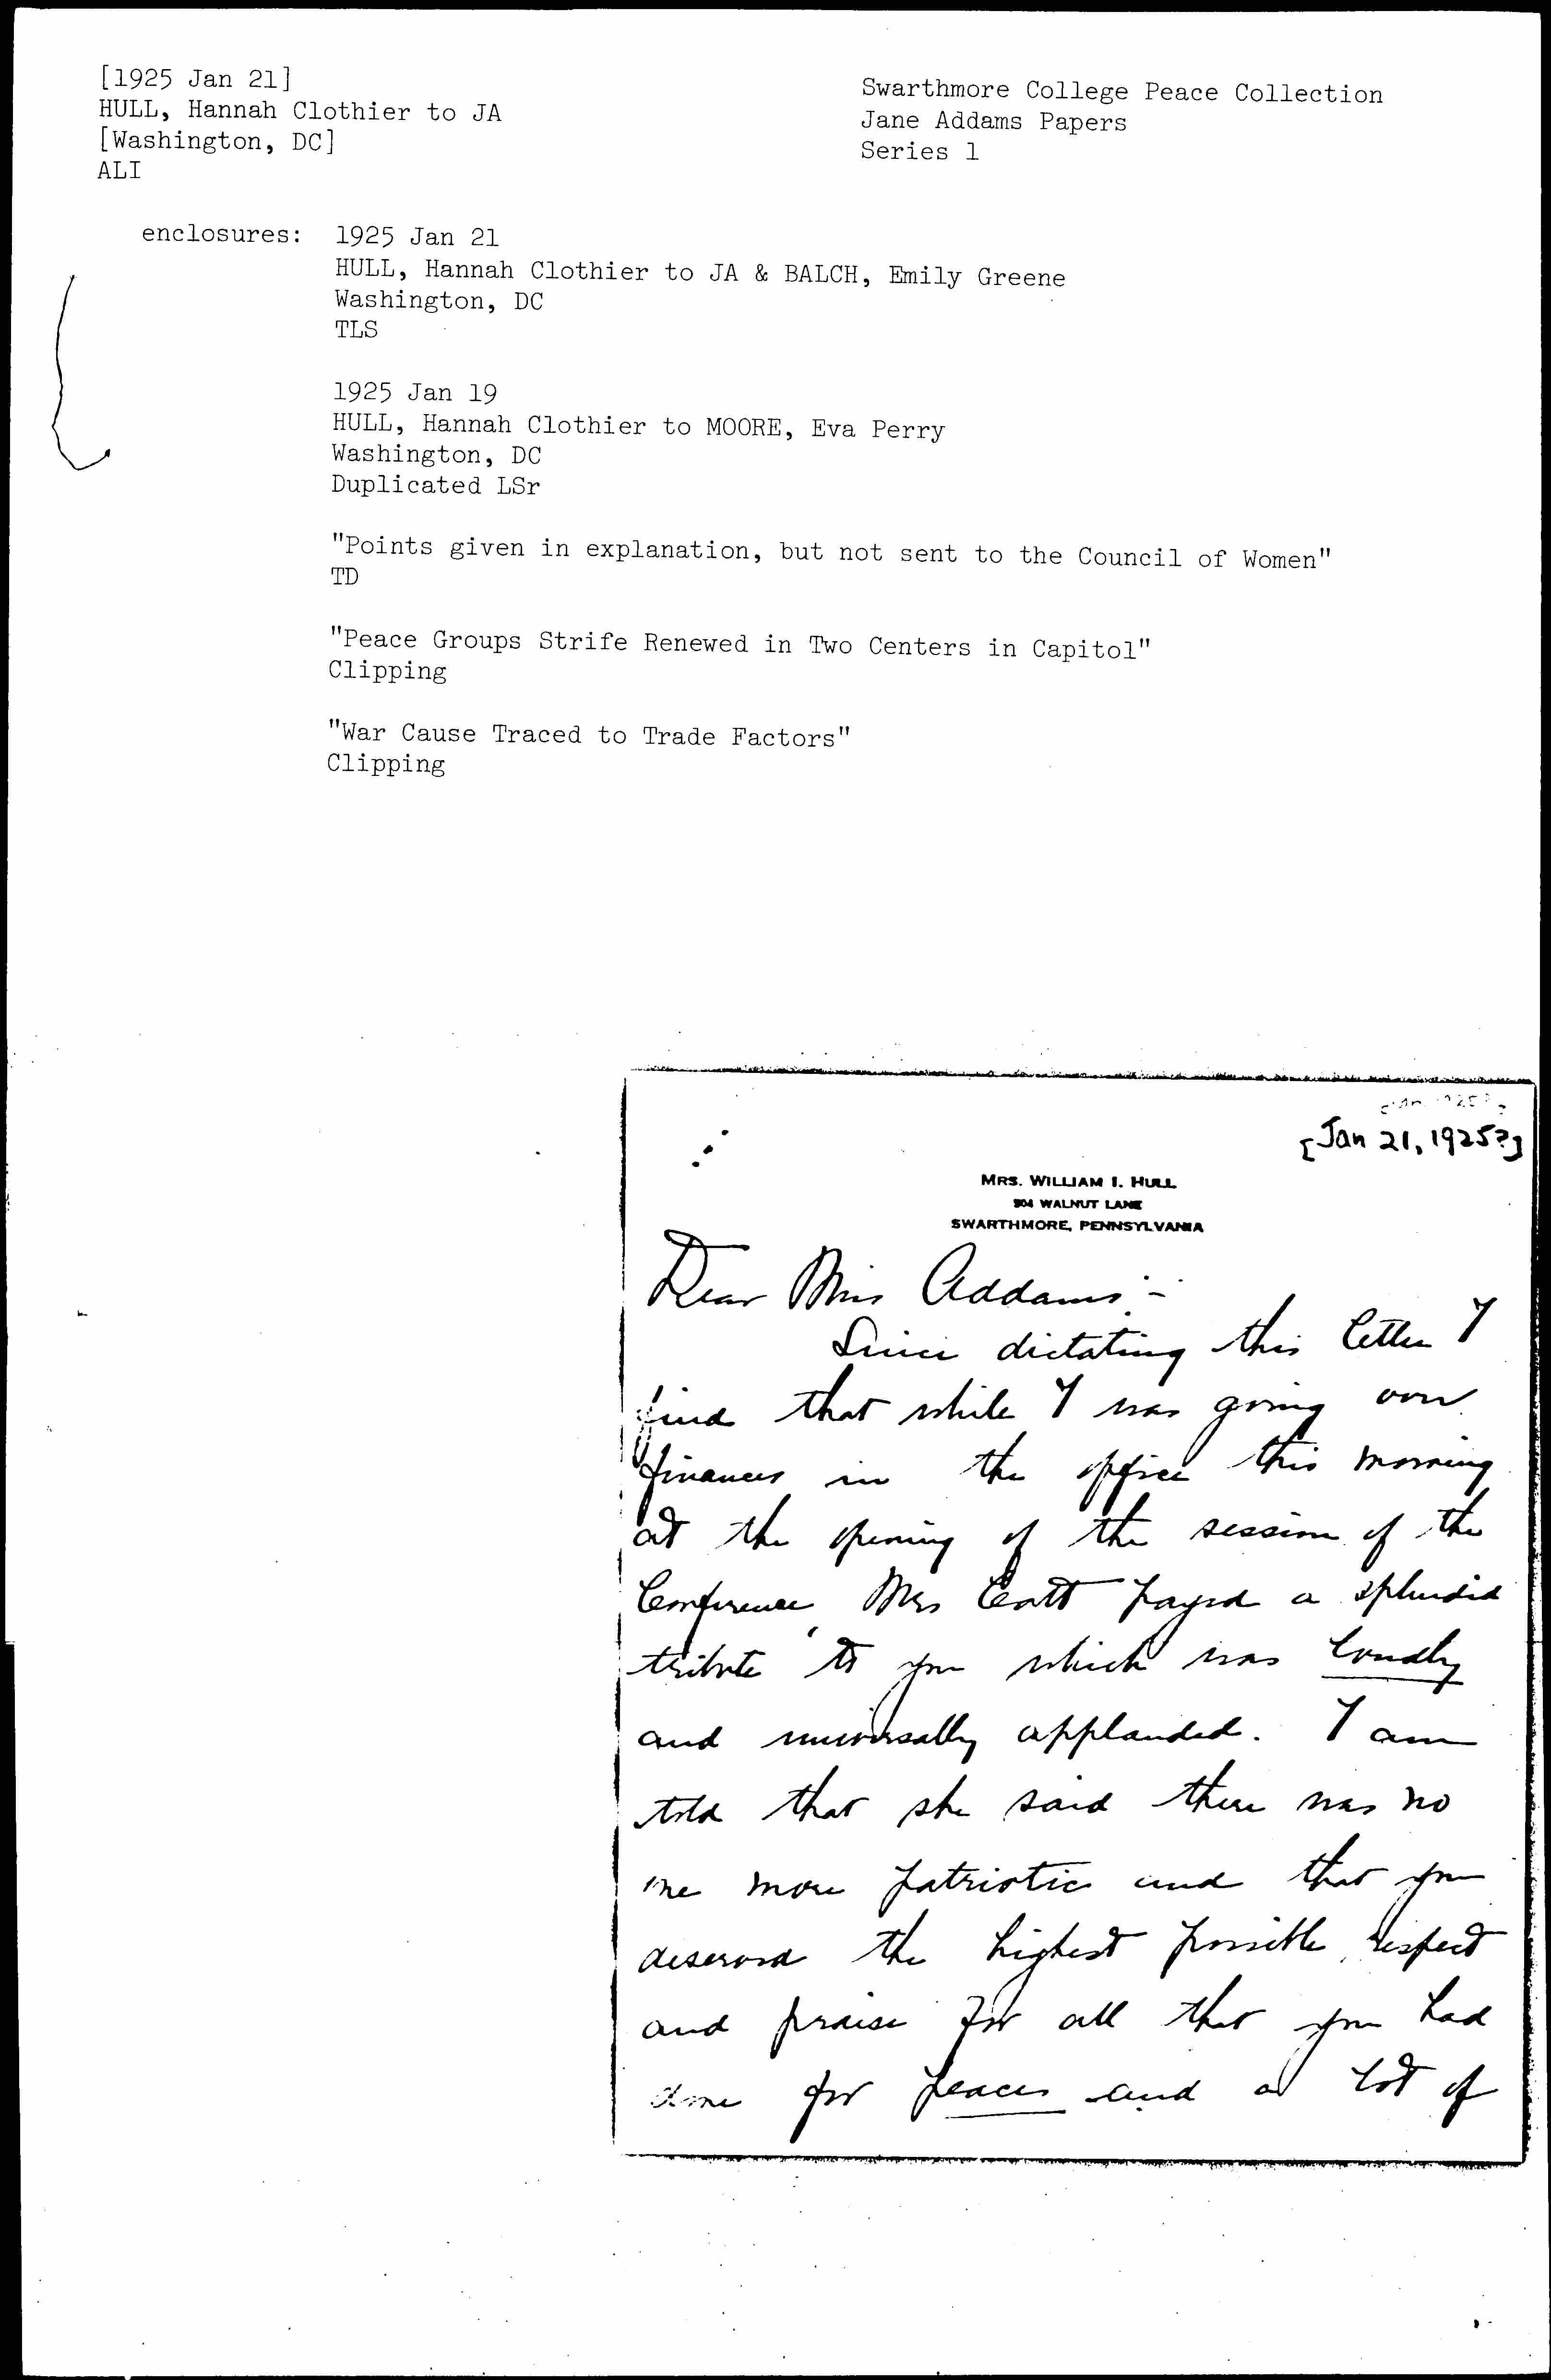 [1925 Jan 21]
HULL, Hannah Clothier to JA
[Washington, DC]
ALI
Swarthmore College Peace Collection
Jane Addams Papers
Series 1
enclosures: 1925 Jan 21
HULL, Hannah Clothier to JA & BALCH, Emily Greene
Washington, DC
TLS
1925 Jan 19
HULL, Hannah Clothier to MOORE, Eva Perry
Washington, DC
Duplicated LSr
"Points given in explanation, but not sent to the Council of Women"
TD
"Peace Groups Strife Renewed in Two Centers in Capitol"
Clipping
"War Cause Traced to Trade Factors"
Clipping
[Jan 21, 1925?]
MRS. WILLIAM I. HULL
504 WALNUT LANE
SWARTHMORE, PENNSYLVANIA
Dear Miss Addams:-
Since dictating this letter I
find that while I was going over
finances in the office this morning
at the opening of the session of the
Conference, Mrs Catt payed a splendid
tribute to you which was loudly
and universally applauded. I am
told that she said there was no
one more patriotic and that you
deserved the highest possible respect
and praise for all that you had
done for peace and a lot of